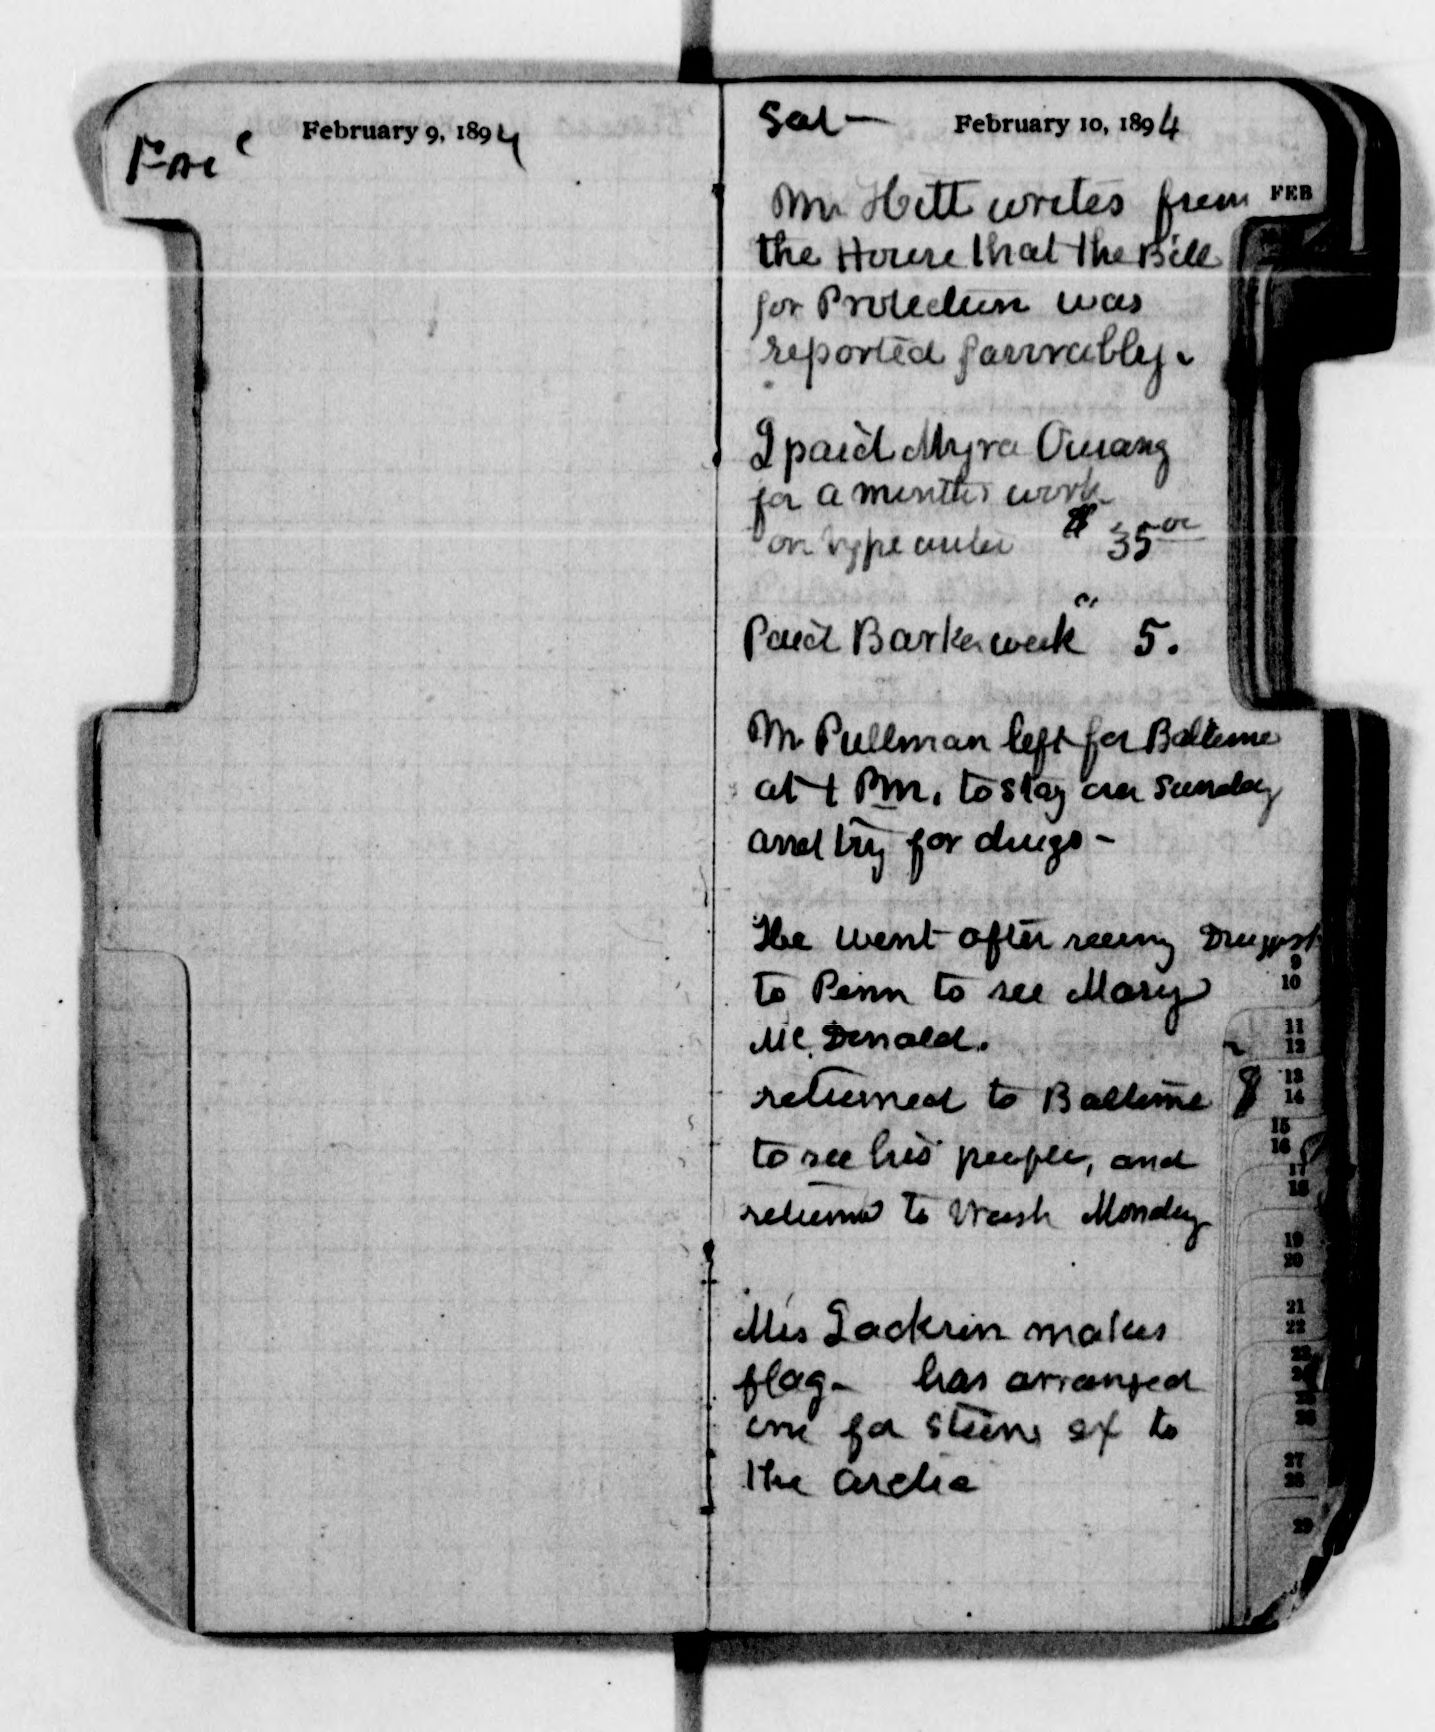 February 9, 1894
Sat — February 10, 1894
Mr Hitt writes from
the House that the Bill
for Protection was
reported favorably.
I paid Myra
for a months work
on type writer $ 35 00
Paid Barker week " 5.
Mr Pullman left for Baltimore
at 1 PM. to stay over Sunday
and try for drugs -
He went after seeing Druggist
to Penn to see Mary
McDonald.
returned to Baltimore
to see his people, and
returned to Wash Monday
makes
flag - has arranged
one for ex to
the
FEB
9
10
11
12
13
14
15
16
17
18
19
20
21
22
23
24
25
26
27
28
29